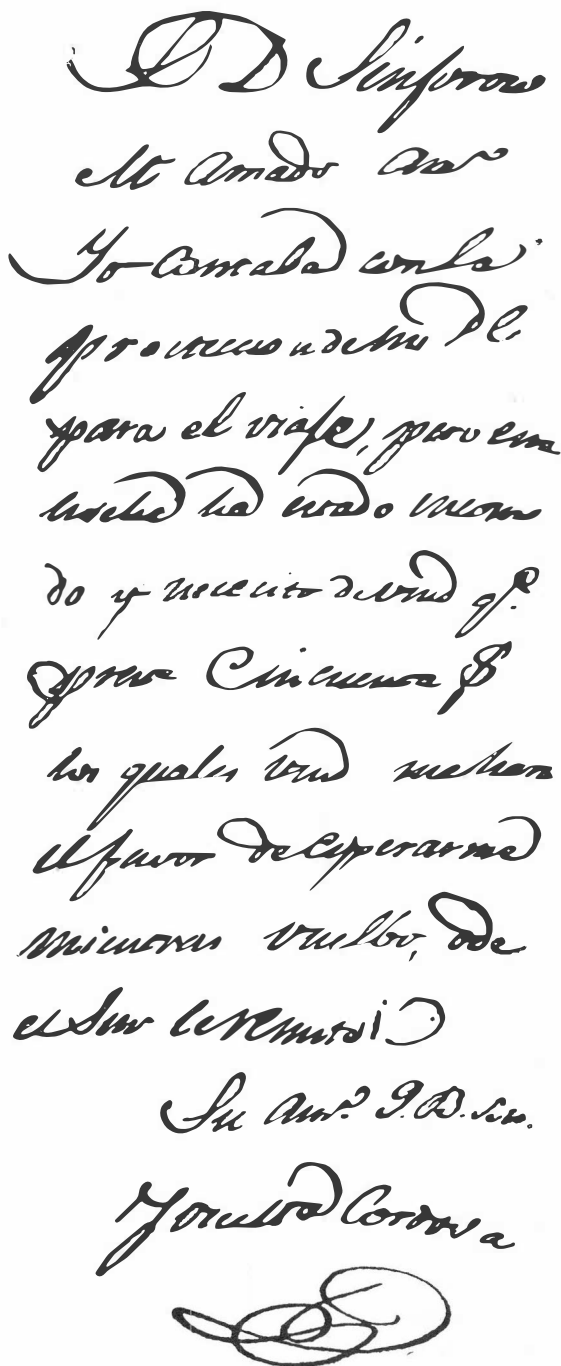 S. D. Sinforoso
Mi Amado Amo
Yo Contaba con la
proteccion de mi
para el viaje, pero esta
noche ha estado incomo
do y necesito de vmd qe.
preste Cincuenta $
los quales vmd me hara
el favor de esperarme
mientras vuelbo, o de
el Sur le remito
Su Amo. Q. B. S. m.
Cordova